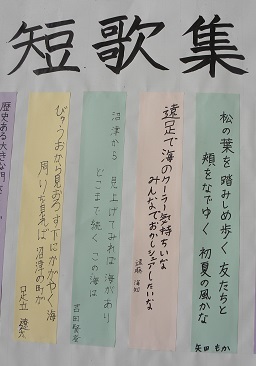 短歌集
松の葉を踏みしめ歩く友たちと
頬をなでゆく初夏の風かな
矢田 もか
遠足で海のクーラー気持ちいな
みんなでおかしシェアしたいな
遠藤
沼津から見上げてみれば海があり
どこまで続くこの海は
吉田
びゅうおから見おろす下にかがやく海
周りを見れば沼津の町が
足立
歴史ある大きな門